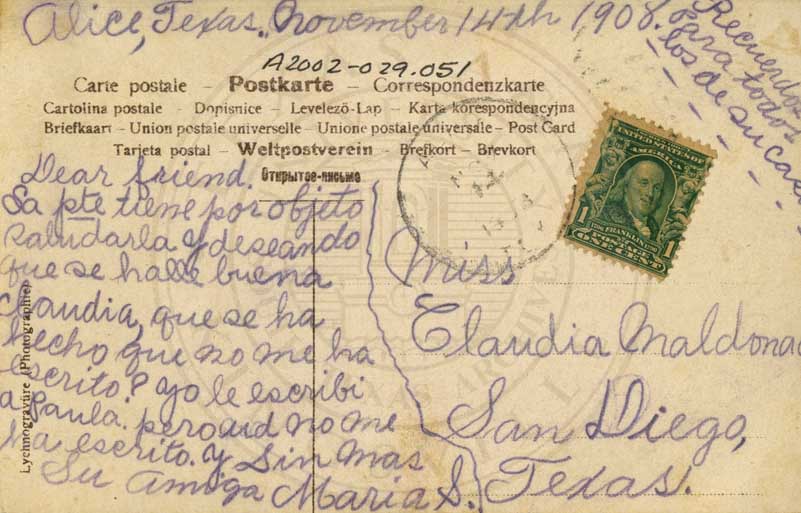 Alice, Texas. November 14th 1908.
Recuerdos
para todos
los de su casa
A2002-029.051
Carte postale – Postkarte – Correspondenzkarte
Cartolina postale – Dopisnice – Levelező-Lap – Karta korespondencyjna
Briefkaart – Union postale universelle – Unione postale universale – Post Card
Tarjeta postal – Weltpostverein – Brefkort – Brevkort
Открытое-письмо
UNITED STATES OF
AMERICA
1706 FRANKLIN 1790
1 POSTAGE 1
ONE CENT
Dear friend.
La pte tiene por objeto
saludarla y deseando
que se halle buena
Claudia, que se ha
hecho que no me ha
escrito? yo le escribi
a Paula. pero ud no me
ha escrito. y Sin mas
Su amiga Maria S.
Miss
Claudia Maldonado
San Diego,
Texas.
Lychnogravüre (Photographie)